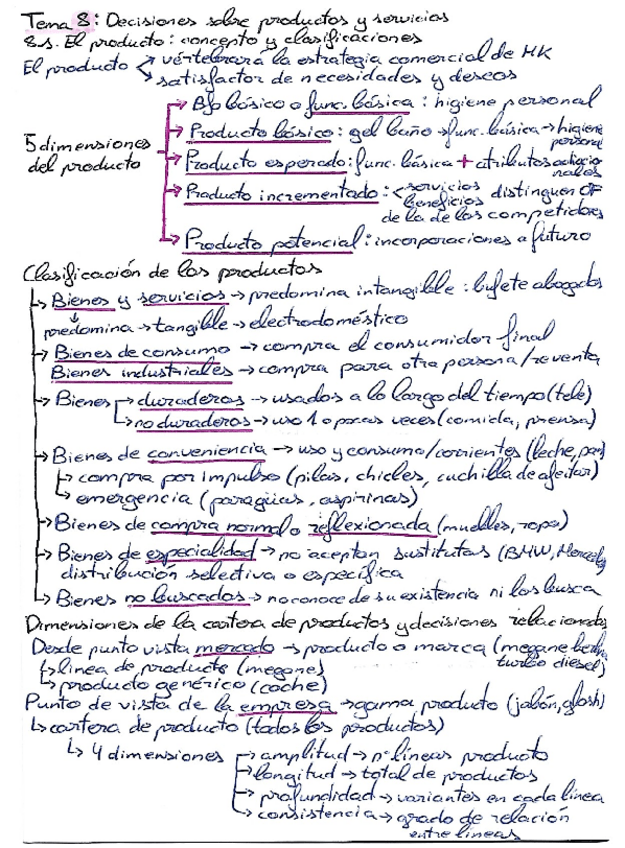 Tema 8: Decisiones sobre productos y servicios
8.1. El producto: concepto y clasificaciones
El producto < vértebrará la estrategia comercial de MK
satisfactor de necesidades y deseos
5 dimensiones del producto
Bfo básico o func. básica: higiene personal
Producto básico: gel baño → func. básica → higiene personal
Producto esperado: func. básica + atributos adicionales
Producto incrementado: < servicios beneficios distinguen OF
de la de los competidores
Producto potencial: incorporaciones a futuro
Clasificación de los productos
→ Bienes y servicios → predomina intangible: bufete abogados
predomina → tangible → electrodoméstico
→ Bienes de consumo → compra el consumidor final
Bienes industriales → compra para otra persona/reventa
→ Bienes → duraderos → usados a lo largo del tiempo (tele)
→ no duraderos → uso 1 o pocas veces (comida, prensa)
→ Bienes de conveniencia → uso y consumo/corrientes (leche, pan)
↳ compra por impulso (pilas, chicles, cuchilla de afeitar)
↳ emergencia (paragüas, aspirinas)
→ Bienes de compra normal o reflexionada (muebles, ropa)
→ Bienes de especialidad → no aceptan sustitutos (BMW, Mercedes)
distribución selectiva o específica
↳ Bienes no buscados → no conoce de su existencia ni los busca
Dimensiones de la cartera de productos y decisiones relacionadas
Desde punto vista mercado → producto o marca (megane turbo diesel)
↳ linea de producto (megane)
↳ producto genérico (coche)
Punto de vista de la empresa → gama producto (jabón, )
↳ cartera de producto (todos los productos)
↳ 4 dimensiones → amplitud → nº líneas producto
→ longitud → total de productos
→ profundidad → variantes en cada linea
→ consistencia → grado de relación
entre lineas